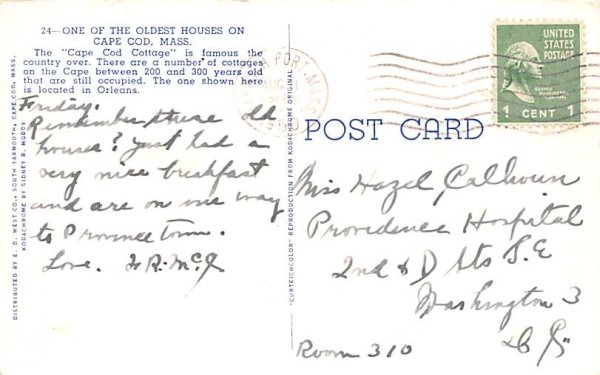 24—ONE OF THE OLDEST HOUSES ON
CAPE COD, MASS.
The "Cape Cod Cottage" is famous the
country over. There are a number of cottages
on the Cape between 200 and 300 years old
that are still occupied. The one shown here
is located in Orleans.
Friday.
Remember these old
houses? Just had a
very nice breakfast
and are on our way
to Provincetown.
Love.
DISTRIBUTED BY E. D. WEST CO., SOUTH YARMOUTH, CAPE COD, MASS.
KODACHROME BY SIDNEY R. MURDY
"CURTEICHCOLOR" REPRODUCTION FROM KODACHROME ORIGINAL
PORT MASS
UNITED
STATES
POSTAGE
GEORGE
WASHINGTON
1 CENT 1
POST CARD
Miss Hazel Calhoun
Providence Hospital
2nd & D Sts S.E
Washington 3
D.C.
Room 310